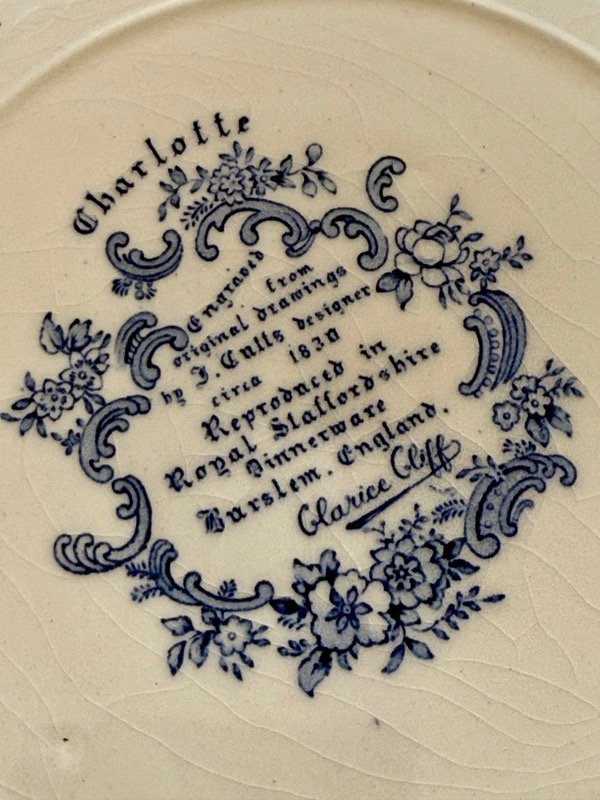 Charlotte
Engraved
from
original drawings
by J. Cutts designer
circa 1830
Reproduced in
Royal Staffordshire
Dinnerware
Burslem. England.
Clarice Cliff